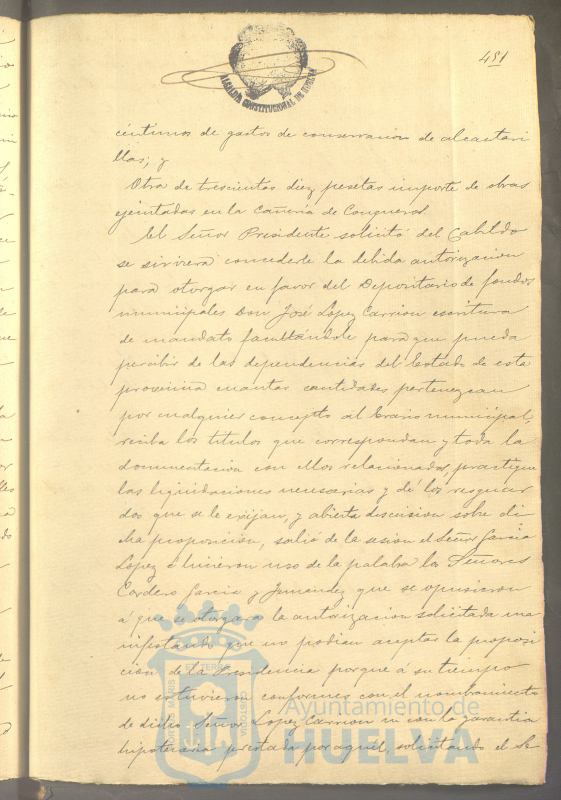 451
ALCALDIA CONSTITUCIONAL DE HUELVA
céntimos de gastos de conservacion de alcantari
llas; y
Otra de trescientas diez pesetas importe de obras
ejecutadas en la Cañeria de Conquero.
El Señor Presidente solicitó del Cabildo
se sirviera concederle la debida autorizacion
para otorgar en favor del Depositario de fondos
municipales Don José Lopez Carrion escritura
de mandato facultándole para que pueda
percibir de las dependencias del Estado de esta
provincia cuantas cantidades pertenezcan
por cualquier concepto al Erario municipal,
reciba los titulos que correspondan y toda la
documentacion con ellos relacionada, practique
las liquidaciones necesarias y dé los resguar
dos que se le exijan, y abierta discusion sobre di
cha proposicion, salió de la sesion el Señor Garcia
Lopez é hicieron uso de la palabra los Señores
Cordero Garcia y Jimenez que se opusieron
á que se otorgara la autorizacion solicitada ma
nifestando que no podian aceptar la proposi
cion de la Presidencia porque á su tiempo
no estuvieron conformes con el nombramiento
de dicho Señor Lopez Carrion ni con la garantia
hipotecaria prestada por aquel, solicitando el Se
PORTUS MARIS ET TERRÆ CUSTODIA
Ayuntamiento de
HUELVA